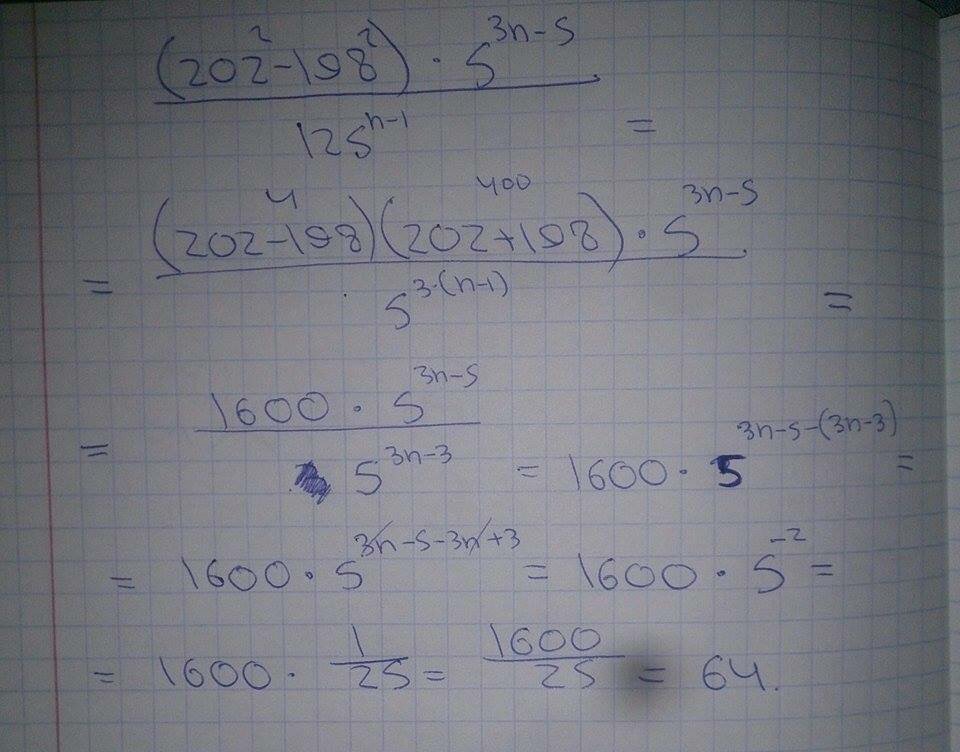 (202² - 198²) · 5^(3n-5)
125^(n-1) =
4 400
= (202-198)(202+198) · 5^(3n-5)
5^(3·(n-1)) =
= 1600 · 5^(3n-5)
5^(3n-3) = 1600 · 5^(3n-5-(3n-3)) =
= 1600 · 5^(3n-5-3n+3) = 1600 · 5^(-2) =
= 1600 · 1/25 = 1600/25 = 64.